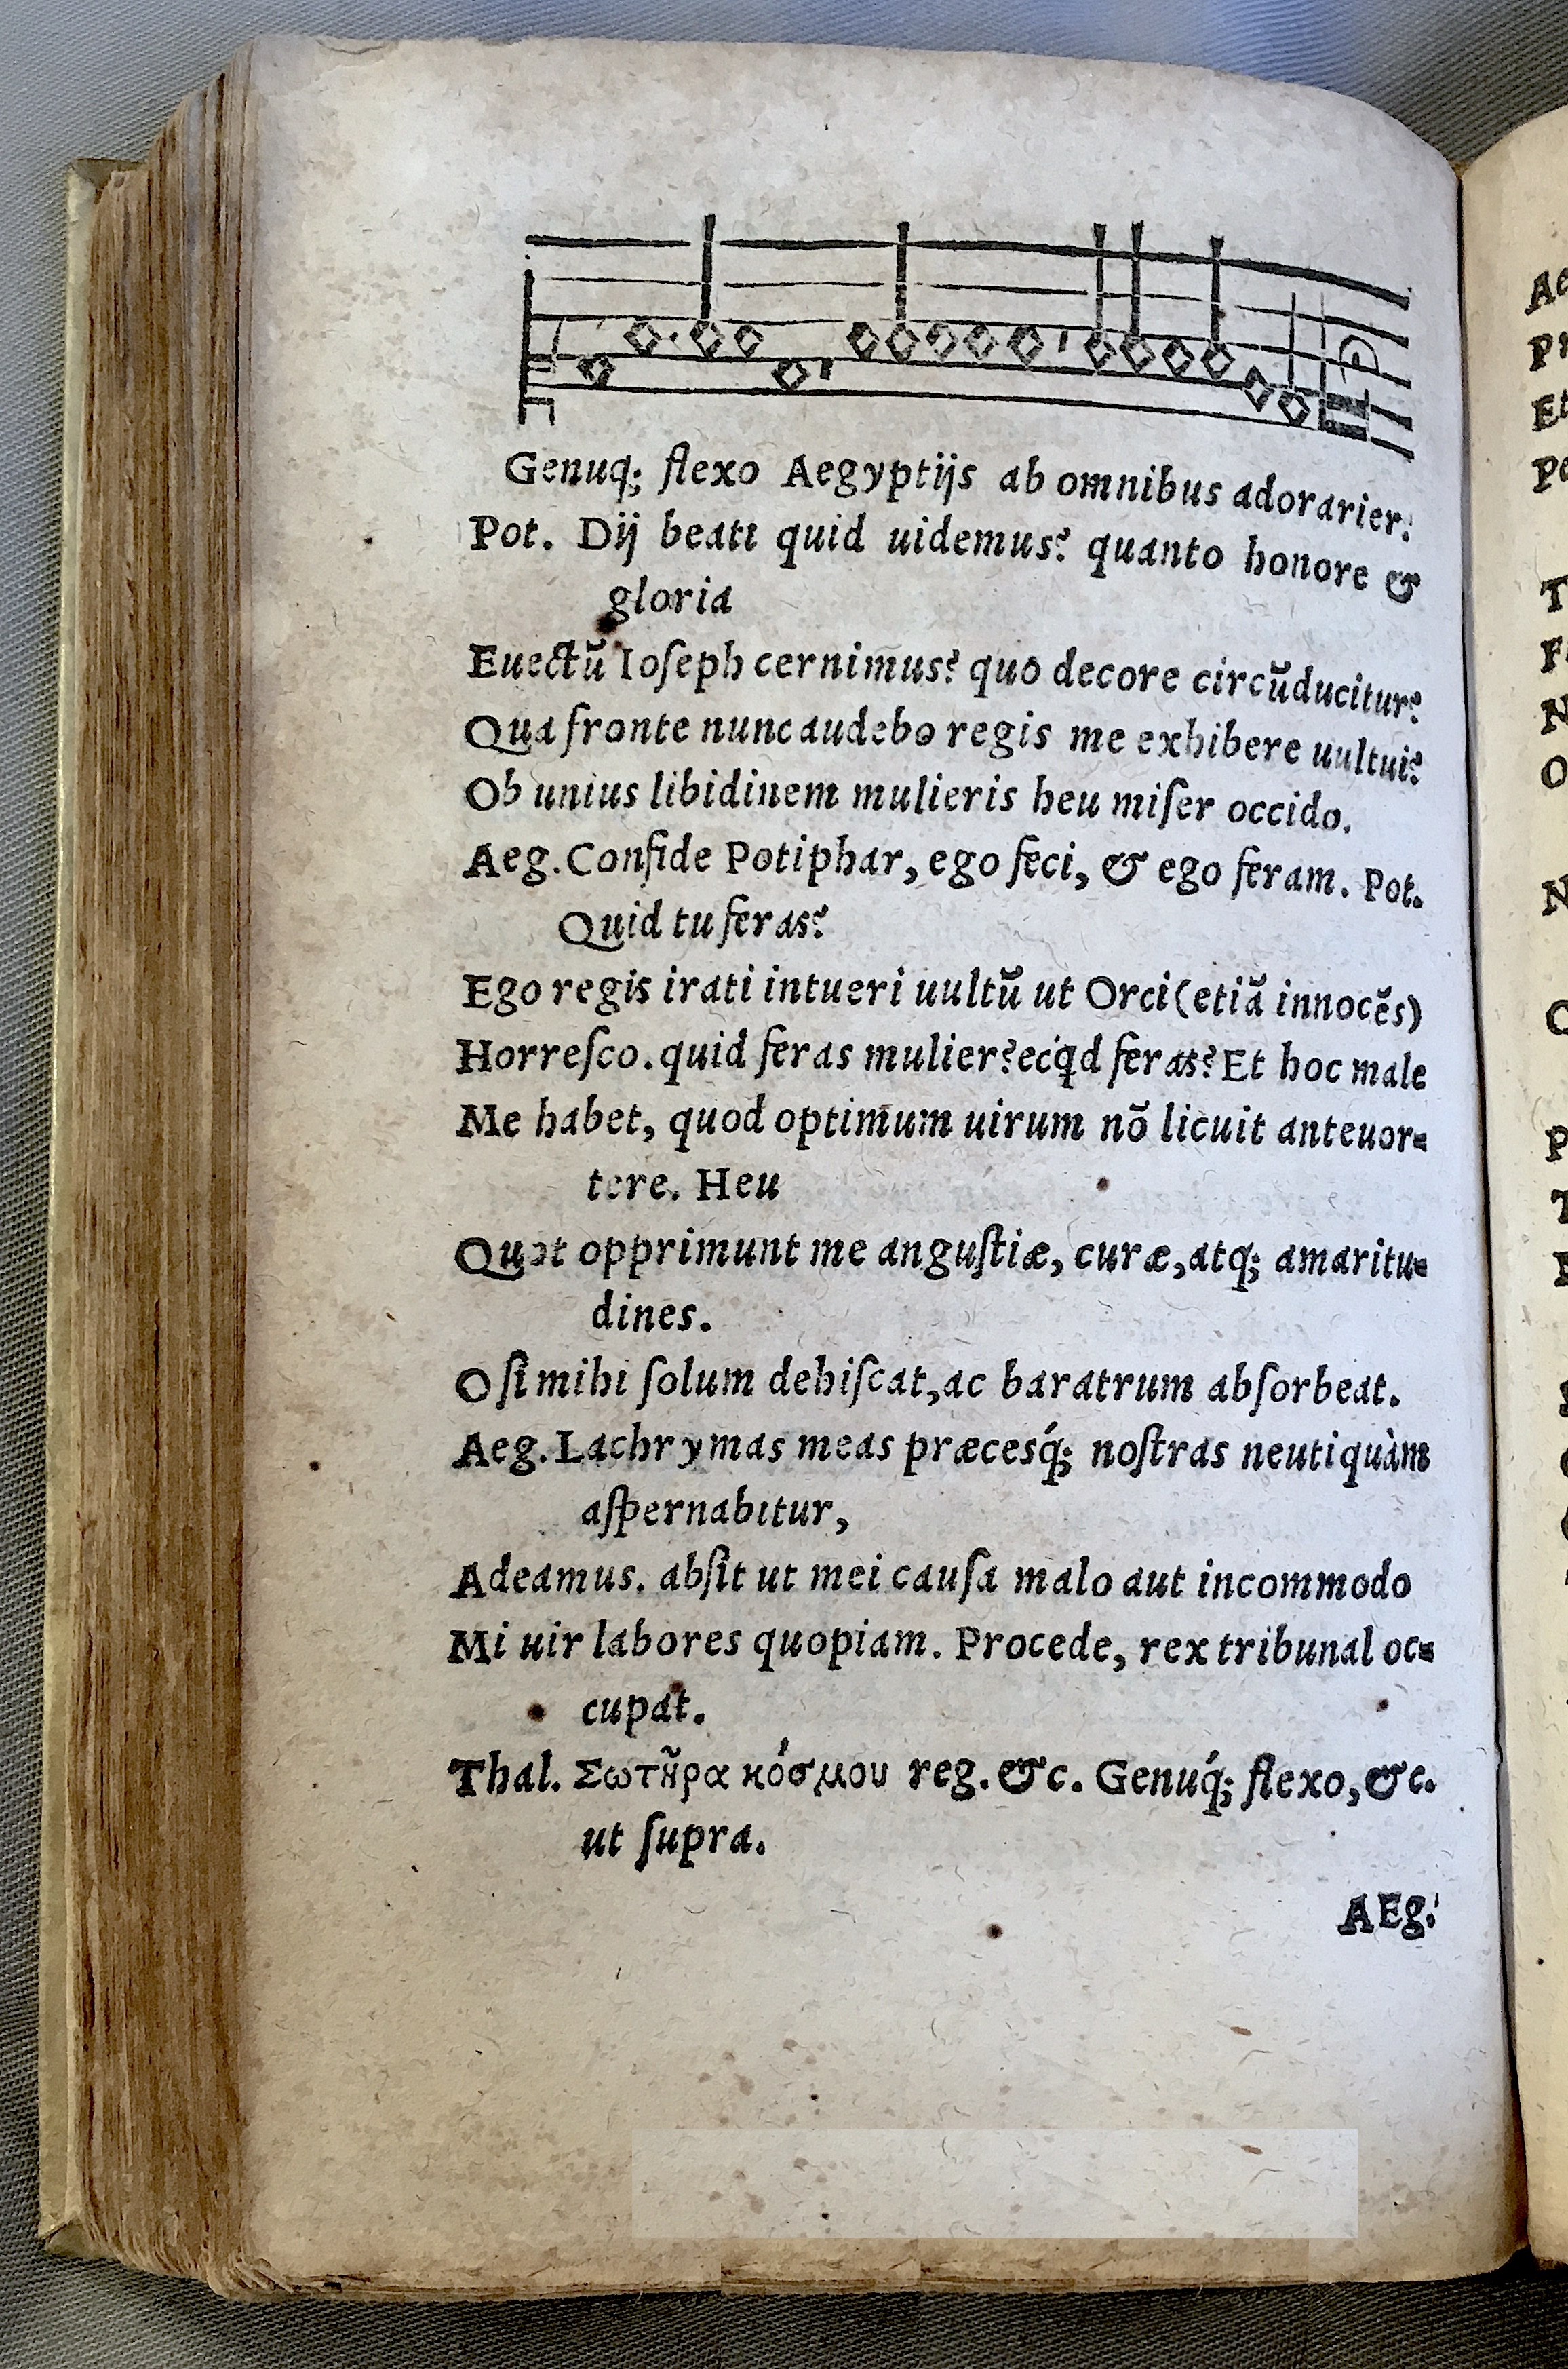 Genuq; flexo Aegyptijs ab omnibus adorarier:
Pot. Dij beati quid uidemus? quanto honore &
gloria
Euectũ Ioſeph cernimus? quo decore circũducitur?
Qua fronte nunc audebo regis me exhibere uultui?
Ob unius libidinem mulieris heu miſer occido.
Aeg. Confide Potiphar, ego feci, & ego feram. Pot.
Quid tu feras?
Ego regis irati intueri uultũ ut Orci (etiã innocẽs)
Horreſco. quid feras mulier? ecqd feras? Et hoc male
Me habet, quod optimum uirum nõ licuit anteuor=
tere. Heu
Quot opprimunt me anguſtiæ, curæ, atq; amaritu=
dines.
O ſi mihi ſolum dehiſcat, ac baratrum abſorbeat.
Aeg. Lachrymas meas præcesq́; noſtras neutiquàm
aſpernabitur,
Adeamus. abſit ut mei cauſa malo aut incommodo
Mi uir labores quopiam. Procede, rex tribunal oc=
cupat.
Thal. Σωτῆρα κόσμου reg. &c. Genuq́; flexo, &c.
ut ſupra.
AEg.